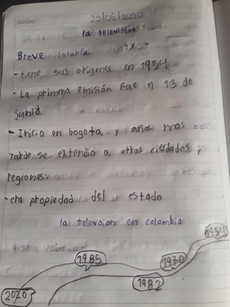 la televisión
Breve historia
- tiene sus origenes en 1954
- La primera emisión Fue el 13 de
junio
- Inicio en bogota y años mas
tarde se extendio a otras ciudades y
regiones
- era propiedad del estado
la televsion en colombia
1954
1985
1970
1982
2020